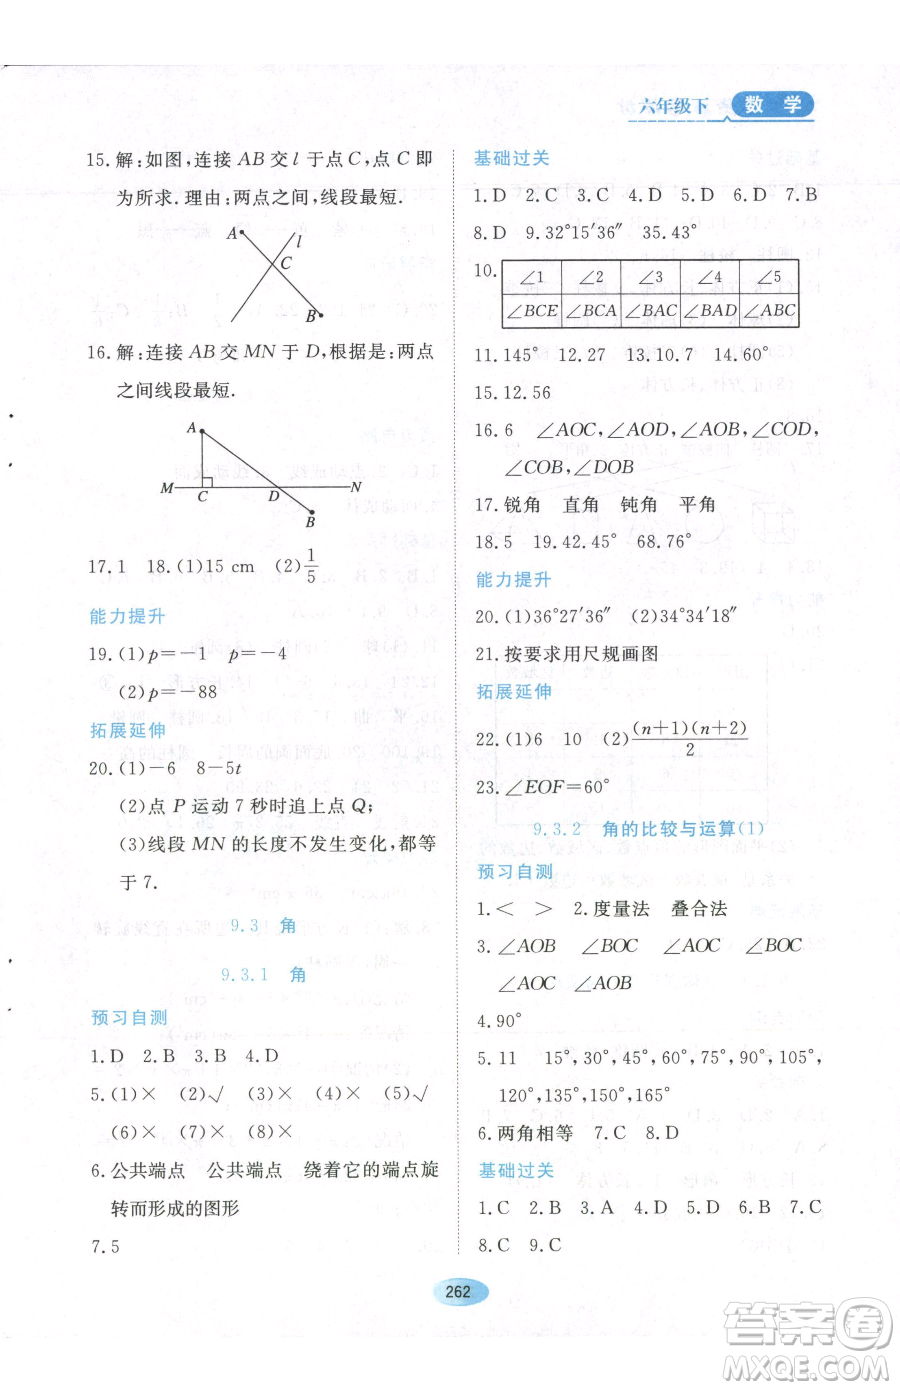 六年级下 数学
15.解:如图,连接 AB 交 l 于点 C,点 C 即
为所求.理由:两点之间,线段最短.
A
l
C
B
16.解:连接 AB 交 MN 于 D,根据是:两点
之间线段最短.
A
M C D N
B
17.1 18.(1)15 cm (2)1/5
能力提升
19.(1)p=-1 p=-4
(2)p=-88
拓展延伸
20.(1)-6 8-5t
(2)点 P 运动 7 秒时追上点 Q;
(3)线段 MN 的长度不发生变化,都等
于 7.
9.3 角
9.3.1 角
预习自测
1.D 2.B 3.B 4.D
5.(1)× (2)√ (3)× (4)× (5)√
(6)× (7)× (8)×
6.公共端点 公共端点 绕着它的端点旋
转而形成的图形
7.5
基础过关
1.D 2.C 3.C 4.D 5.D 6.D 7.B
8.D 9.32°15′36″ 35.43°
10. ∠1 ∠2 ∠3 ∠4 ∠5
∠BCE ∠BCA ∠BAC ∠BAD ∠ABC
11.145° 12.27 13.10.7 14.60°
15.12.56
16.6 ∠AOC,∠AOD,∠AOB,∠COD,
∠COB,∠DOB
17.锐角 直角 钝角 平角
18.5 19.42.45° 68.76°
能力提升
20.(1)36°27′36″ (2)34°34′18″
21.按要求用尺规画图
拓展延伸
22.(1)6 10 (2)(n+1)(n+2)/2
23.∠EOF=60°
9.3.2 角的比较与运算(1)
预习自测
1.< > 2.度量法 叠合法
3.∠AOB ∠BOC ∠AOC ∠BOC
∠AOC ∠AOB
4.90°
5.11 15°,30°,45°,60°,75°,90°,105°,
120°,135°,150°,165°
6.两角相等 7.C 8.D
基础过关
1.C 2.B 3.A 4.D 5.D 6.B 7.C
8.C 9.C
262
答案圈
MXQE.COM